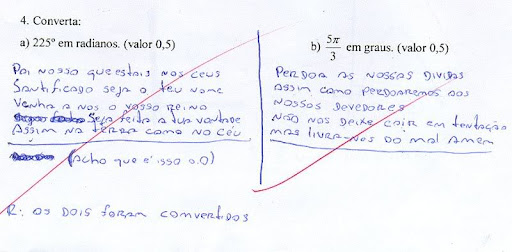 4. Converta:
a) 225º em radianos. (valor 0,5)
Pai nosso que estais nos ceus
Santificado seja o teu nome
Venha a nos o vosso reino
Seja feita a tua vontade
Assim na terra como no céu
(Acho que é isso o.O)
R: os dois foram convertidos
b) 5π/3 em graus. (valor 0,5)
Perdoa as nossas dividas
Assim como perdoaremos aos
nossos devedores
não nos deixe cair em tentação
mas livra-nos do mal amen